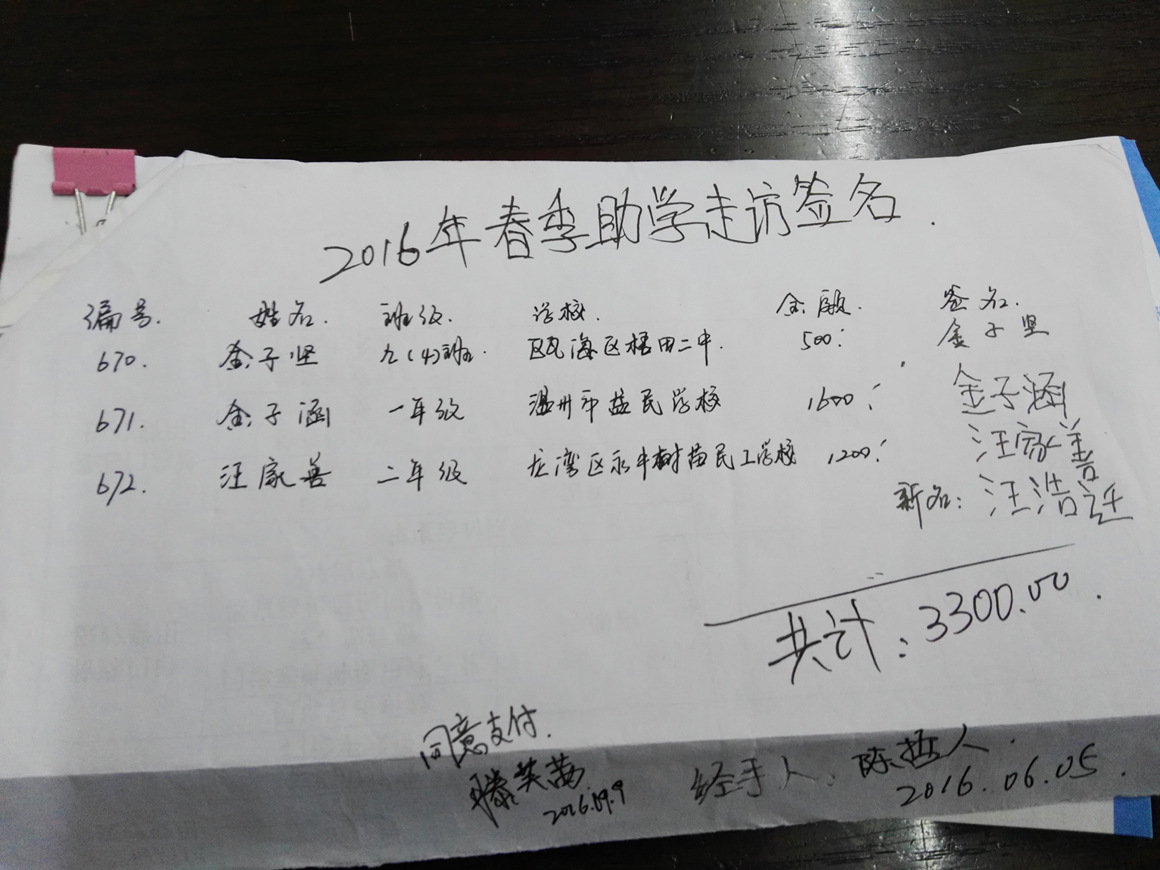 2016年春季助学走访签名.
编号. 姓名. 班级. 学校. 金额 签名.
670. 金子坚 九(4)班. 瓯海区梧田二中. 500: 金子坚
671. 金子涵 一年级 温州市益民学校 1600: 金子涵
672. 汪家善 二年级 龙湾区永中树苗民工学校 1200: 汪家善
新名: 汪浩廷
共计: 3300.00.
同意支付.
滕芙茜
2016.09.9
经手人: 陈哲人.
2016.06.05.